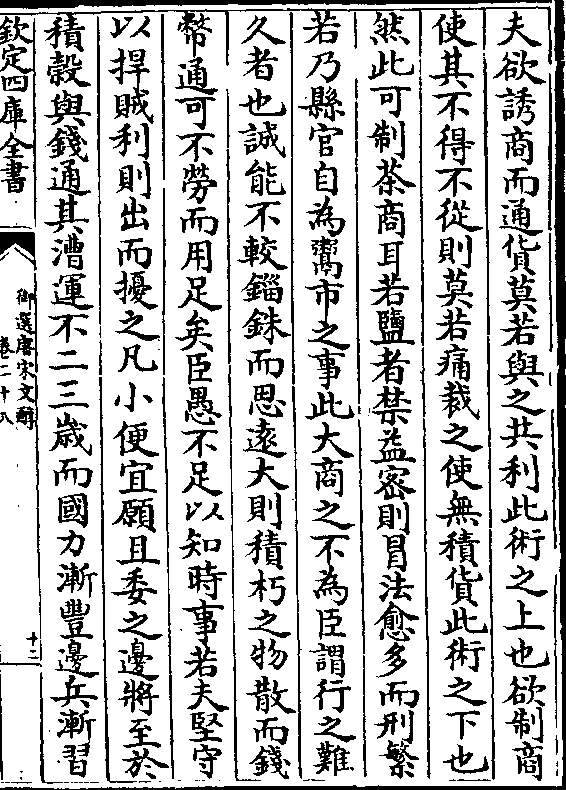 夫欲誘商而通貨莫若與之共利此術之上也欲制商
使其不得不從則莫若痛裁之使無積貨此術之下也
然此可制茶商耳若鹽者禁益密則冒法愈多而刑繁
若乃縣官自為鬻市之事此大商之不為臣謂行之難
久者也誠能不較錙銖而思遠大則積朽之物散而錢
幣通可不勞而用足矣臣愚不足以知時事若夫堅守
以捍賊利則出而擾之凡小便宜願且委之邊將至於
積穀與錢通其漕運不二三歲而國力漸豐邊兵漸習
欽定四庫全書
御選唐宋文醇
卷二十八
十二